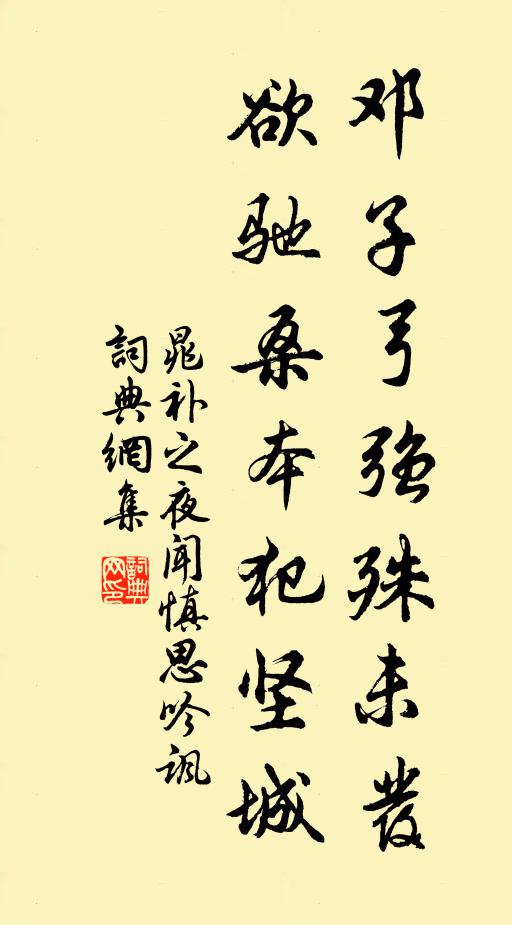 邓子弓强殊未發
欲驰桑本犯坚城
晁补之夜闻慎思吟諷
詞典網集
詞典网印